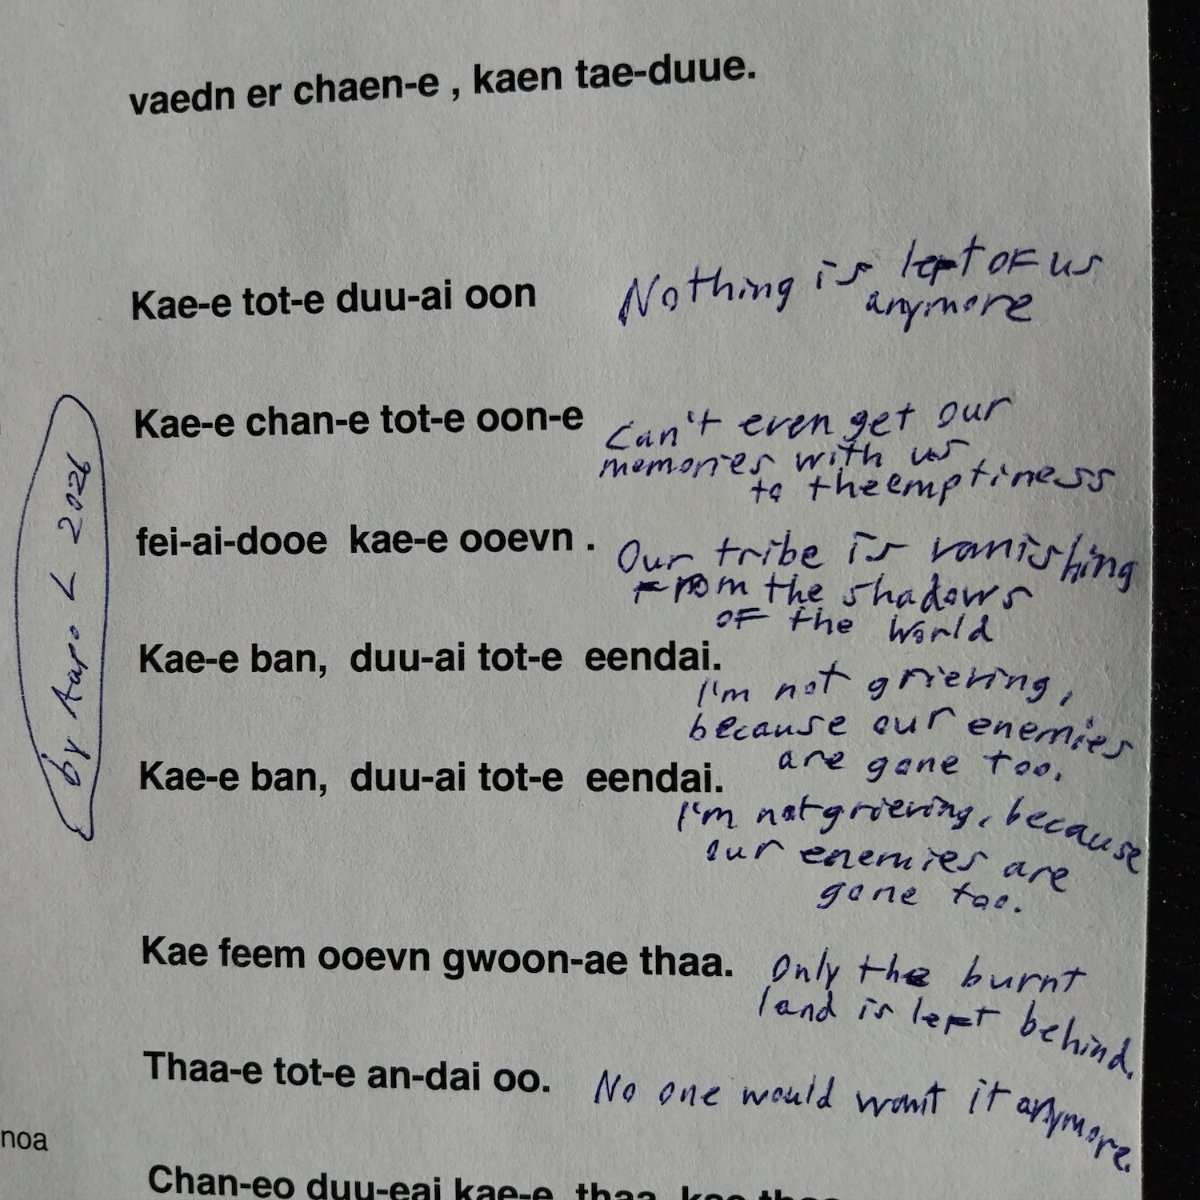 vaedn er chaen-e , kaen tae-duue.
Kae-e tot-e duu-ai oon
Nothing is left of us
anymore
Kae-e chan-e tot-e oon-e
Can't even get our
memories with us
to the emptiness
fei-ai-dooe kae-e ooevn .
Our tribe is vanishing
From the shadows
of the World
Kae-e ban, duu-ai tot-e eendai.
I'm not grieving,
because our enemies
are gone too.
Kae-e ban, duu-ai tot-e eendai.
I'm not grieving, because
our enemies are
gone too.
Kae feem ooevn gwoon-ae thaa.
Only the burnt
land is left behind.
Thaa-e tot-e an-dai oo.
No one would want it anymore.
noa
Chan-eo duu-eai kae-e thaa
by Aapo L 2026